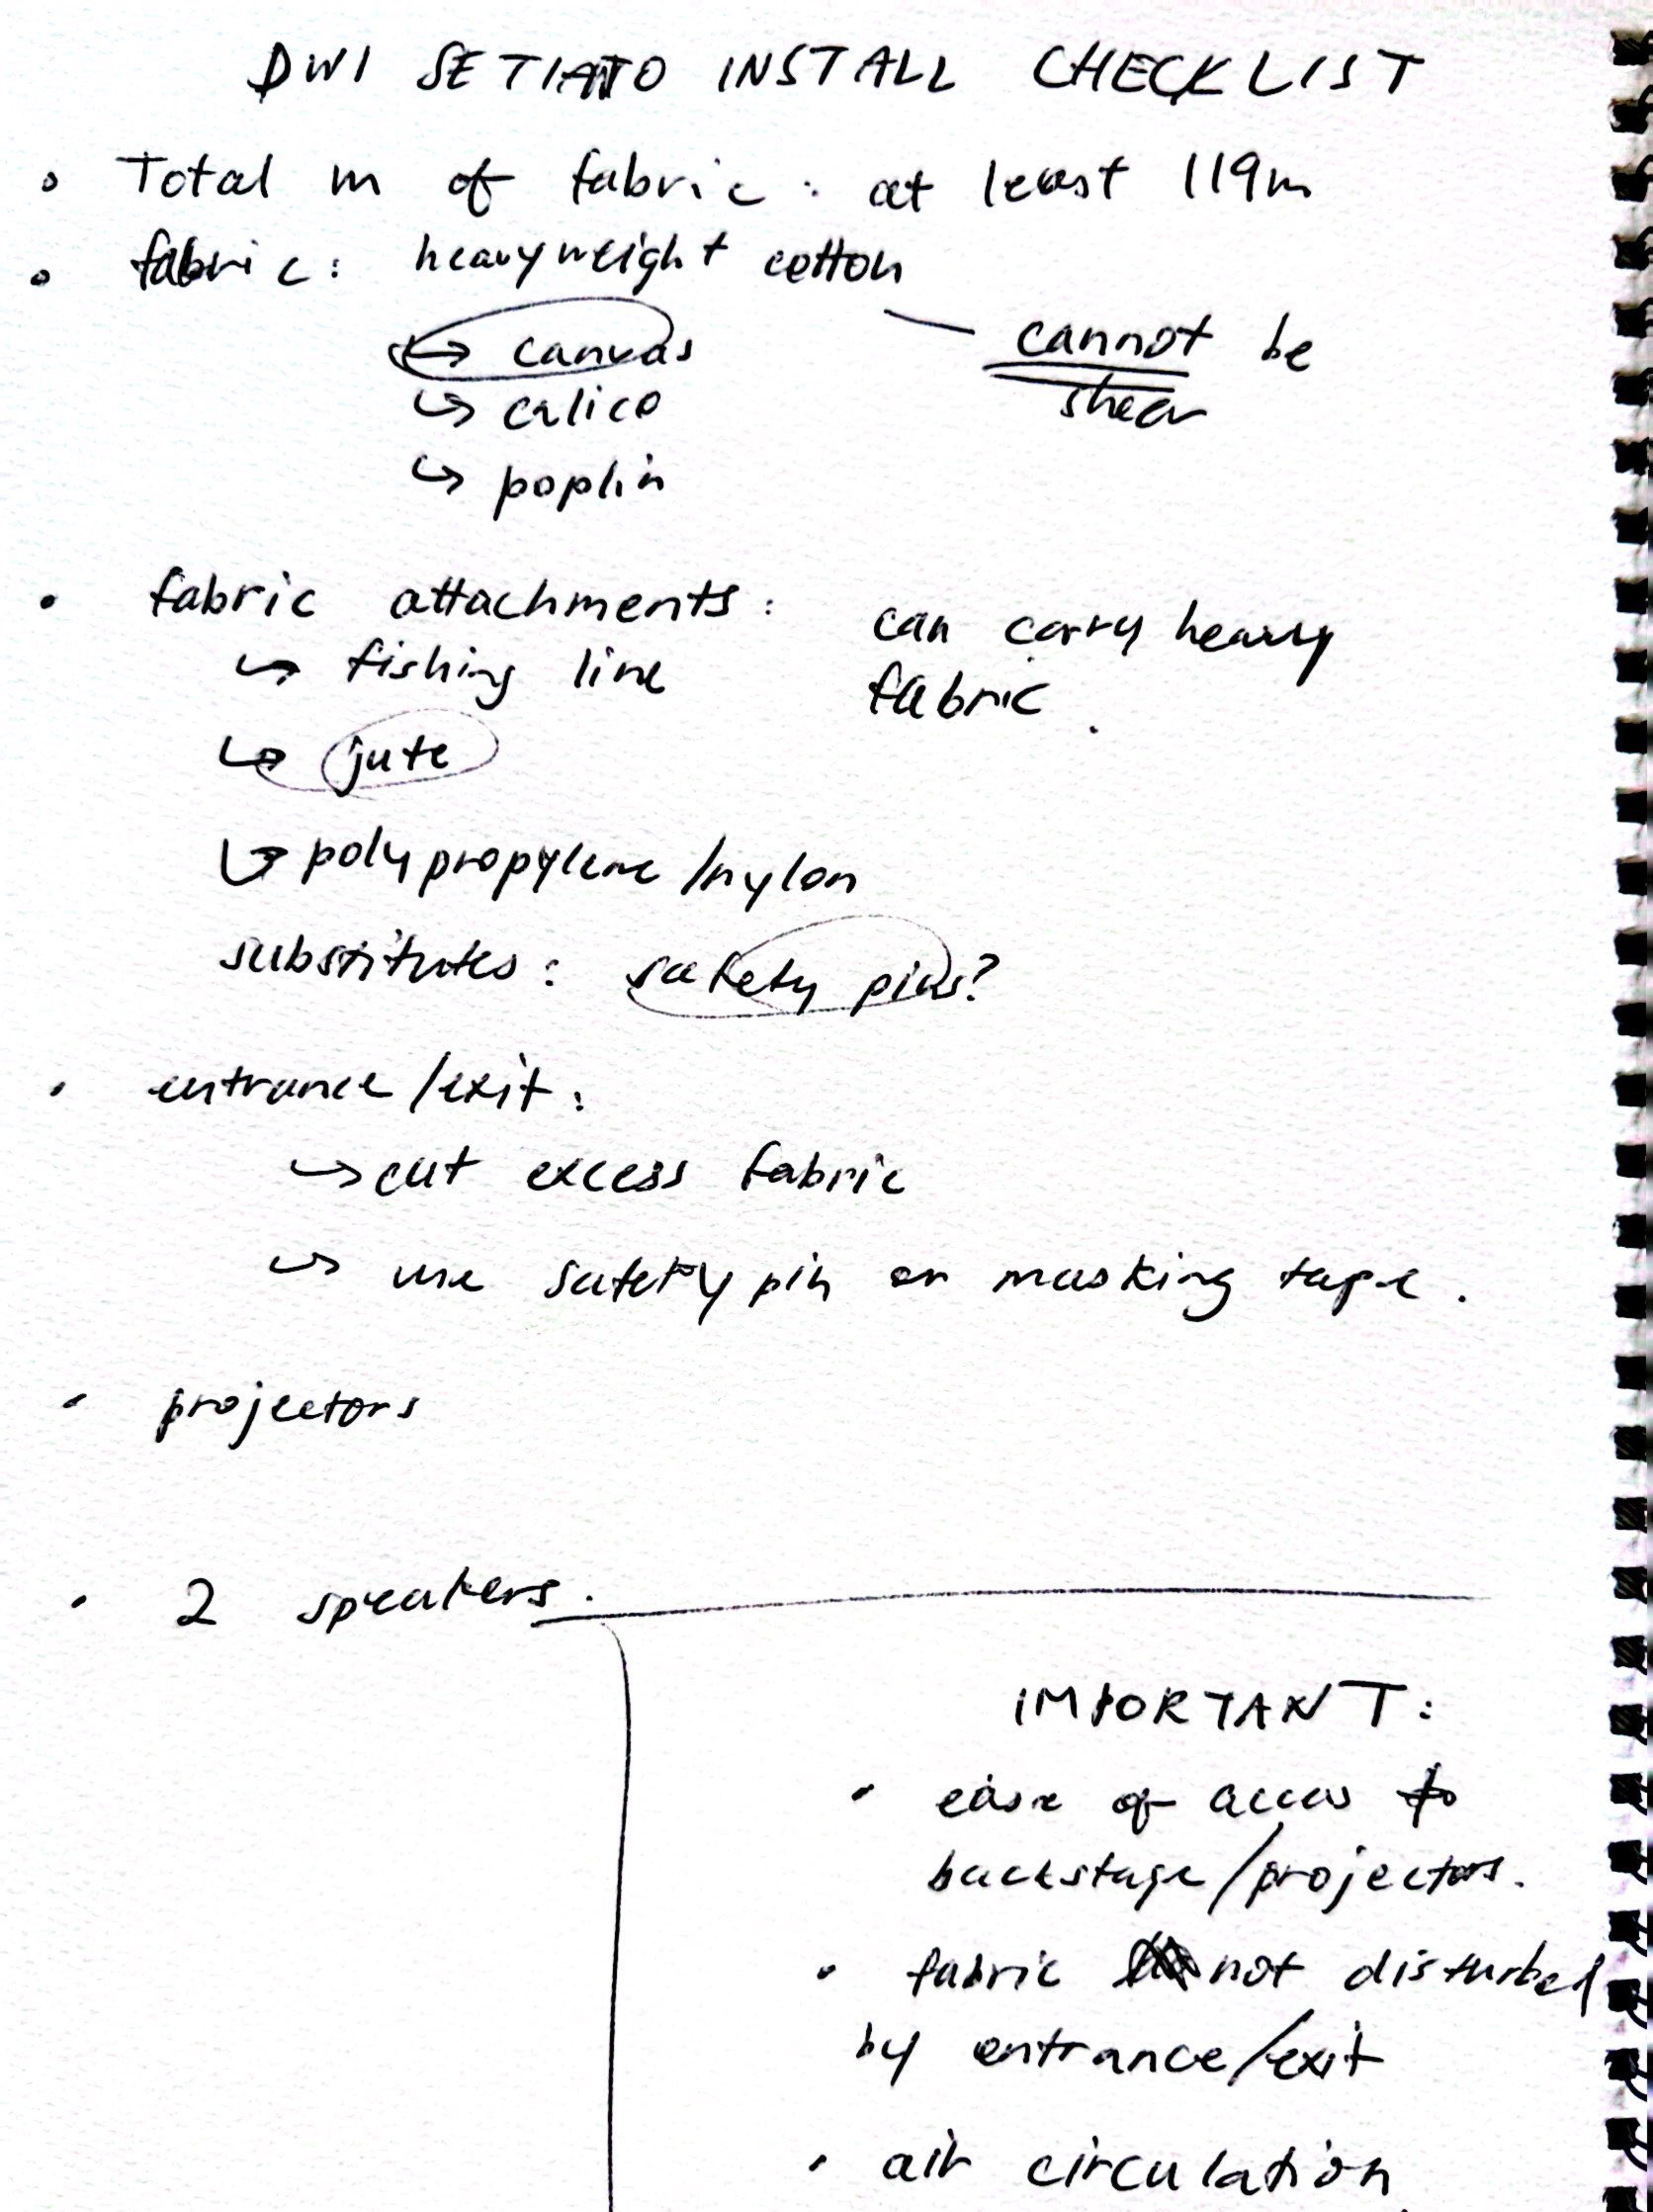 DWI SETIANTO INSTALL CHECKLIST
• Total m of fabric : at least 119m
• fabric : heavyweight cotton
↪ canvas — cannot be
shear
↪ calico
↪ poplin
• fabric attachments : can carry heavy
fabric.
↪ fishing line
↪ jute
↪ polypropylene /nylon
substitutes : safety pins?
• entrance /exit :
↪ cut excess fabric
↪ use safety pin or masking tape.
• projectors
• 2 speakers.
IMPORTANT :
• ease of access to
backstage/projectors.
• fabric not disturbed
by entrance/exit
• air circulation.